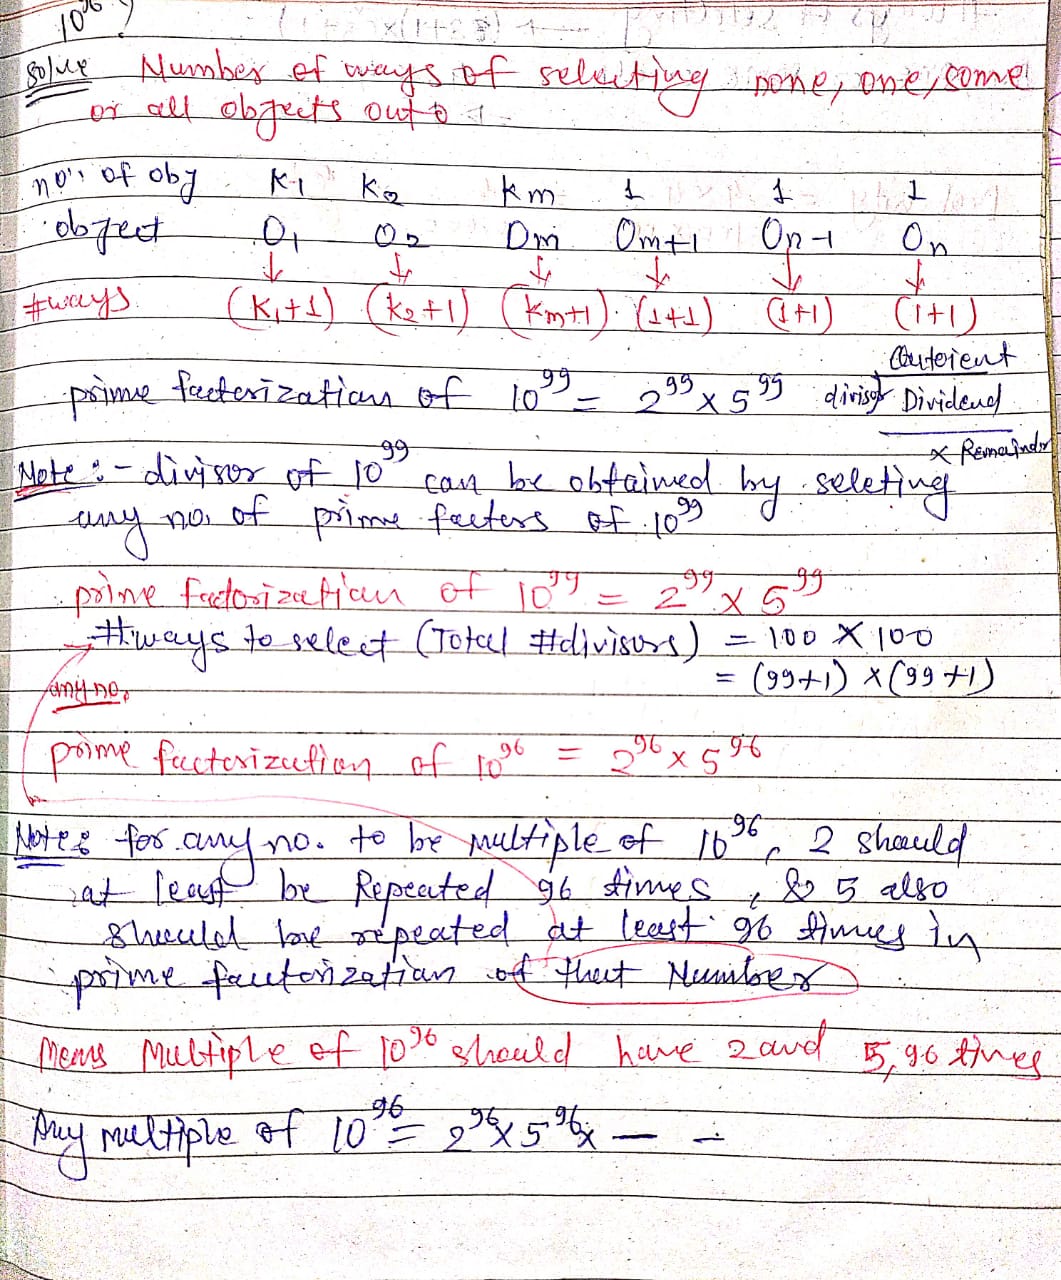 10⁹⁶ ?
Solve Number of ways of selecting none, one, some
or all objects out
no. of obj K1 K2 Km 1 1 1
object O1 O2 Om Om+1 On-1 On
↓ ↓ ↓ ↓ ↓ ↓
#ways (K1+1) (K2+1) (Km+1). (1+1) (1+1) (1+1)
Quterient
prime factorization of 10⁹⁹ = 2⁹⁹ x 5⁹⁹ divisor Dividend
x Remainder
Note :- divisor of 10⁹⁹ can be obtained by seleting
any no. of prime fecters of 10⁹⁹
prime factorization of 10⁹⁹ = 2⁹⁹ x 5⁹⁹
→ #ways to select (Total #divisors) = 100 X 100
any no. = (99+1) x (99+1)
prime factorization of 10⁹⁶ = 2⁹⁶ x 5⁹⁶
Note: for any no. to be multiple of 10⁹⁶, 2 should
at least be Repeated 96 times, & 5 also
should be repeated at least 96 times in
prime factorization of that Number
Means Multiple of 10⁹⁶ should have 2 and 5, 96 times
Any multiple of 10⁹⁶ = 2⁹⁶ x 5⁹⁶ x — —